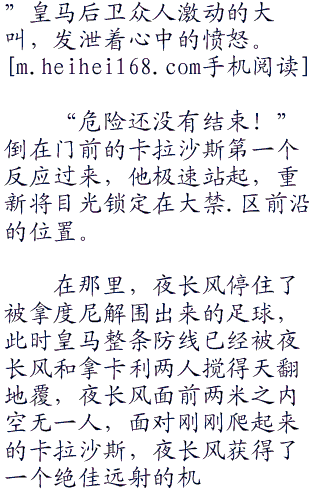 ”皇马后卫众人激动的大
叫，发泄着心中的愤怒。
[m.heihei168.com手机阅读]
“危险还没有结束！”
倒在门前的卡拉沙斯第一个
反应过来，他极速站起，重
新将目光锁定在大禁.区前沿
的位置。
在那里，夜长风停住了
被拿度尼解围出来的足球，
此时皇马整条防线已经被夜
长风和拿卡利两人搅得天翻
地覆，夜长风面前两米之内
空无一人，面对刚刚爬起来
的卡拉沙斯，夜长风获得了
一个绝佳远射的机